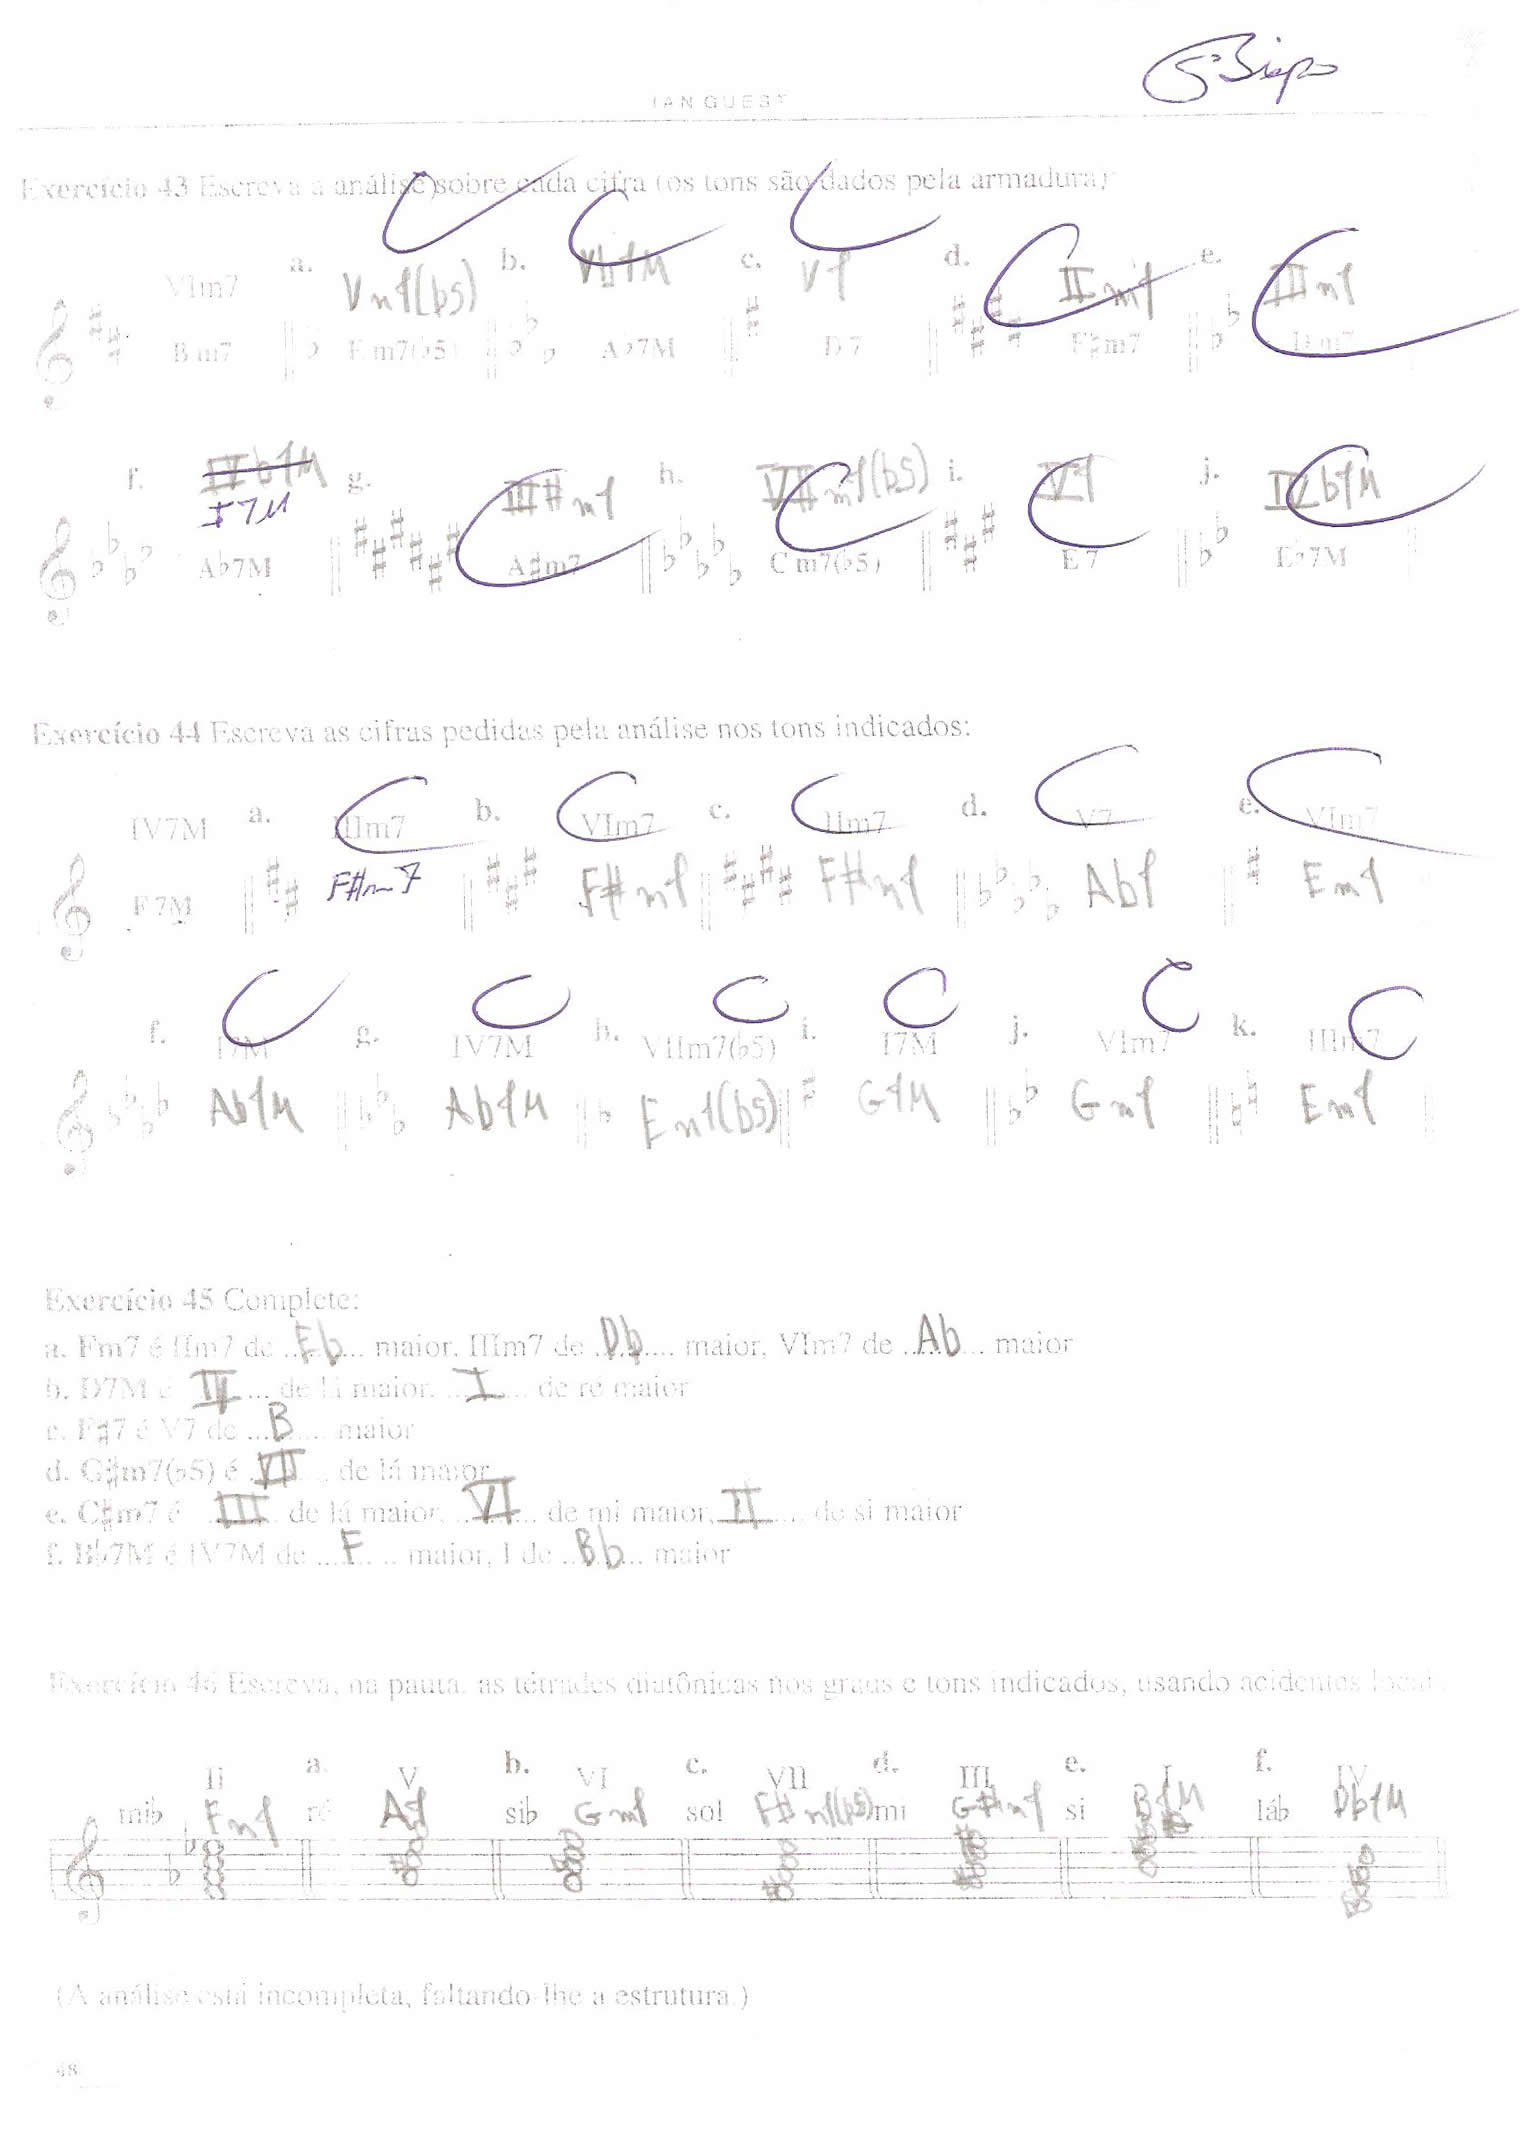 IAN GUEST
Exercício 43 Escreva a análise sobre cada cifra (os tons são dados pela armadura)
a. b. c. d. e.
VIm7 Vm7(b5) Vb7M V7 IIm7 IIIm7
Bm7 Em7(♭5) A♭7M D7 F♯m7 Dm7
f. g. h. i. j.
I7M III#m7 VIIm7(b5) V7 IVb7M
A♭7M A♯m7 Cm7(♭5) E7 E♭7M
Exercício 44 Escreva as cifras pedidas pela análise nos tons indicados:
a. b. c. d. e.
IV7M IIIm7 VIm7 IIm7 V7 VIm7
F7M F#m7 F#m7 F#m7 Ab7 Em7
f. g. h. i. j. k.
I7M IV7M VIIm7(♭5) I7M VIm7 IIIm7
Ab7M Ab7M Em7(b5) G7M Gm7 Em7
Exercício 45 Complete:
a. Fm7 é IIm7 de Eb maior, IIIm7 de Db maior, VIm7 de Ab maior
b. D7M é IV de lá maior, I de ré maior
c. F♯7 é V7 de B maior
d. G♯m7(♭5) é VII de lá maior
e. C♯m7 é III de lá maior, VI de mi maior, II de si maior
f. B♭7M é IV7M de F maior, I de Bb maior
Exercício 46 Escreva, na pauta, as tétrades diatônicas nos graus e tons indicados, usando acidentes locais.
a. b. c. d. e. f.
II V VI VII III I IV
mi♭ Fm7 ré A7 si♭ Gm7 sol F#m7(b5) mi G#m7 si B7M lá♭ Db7M
(A análise está incompleta, faltando-lhe a estrutura.)
48